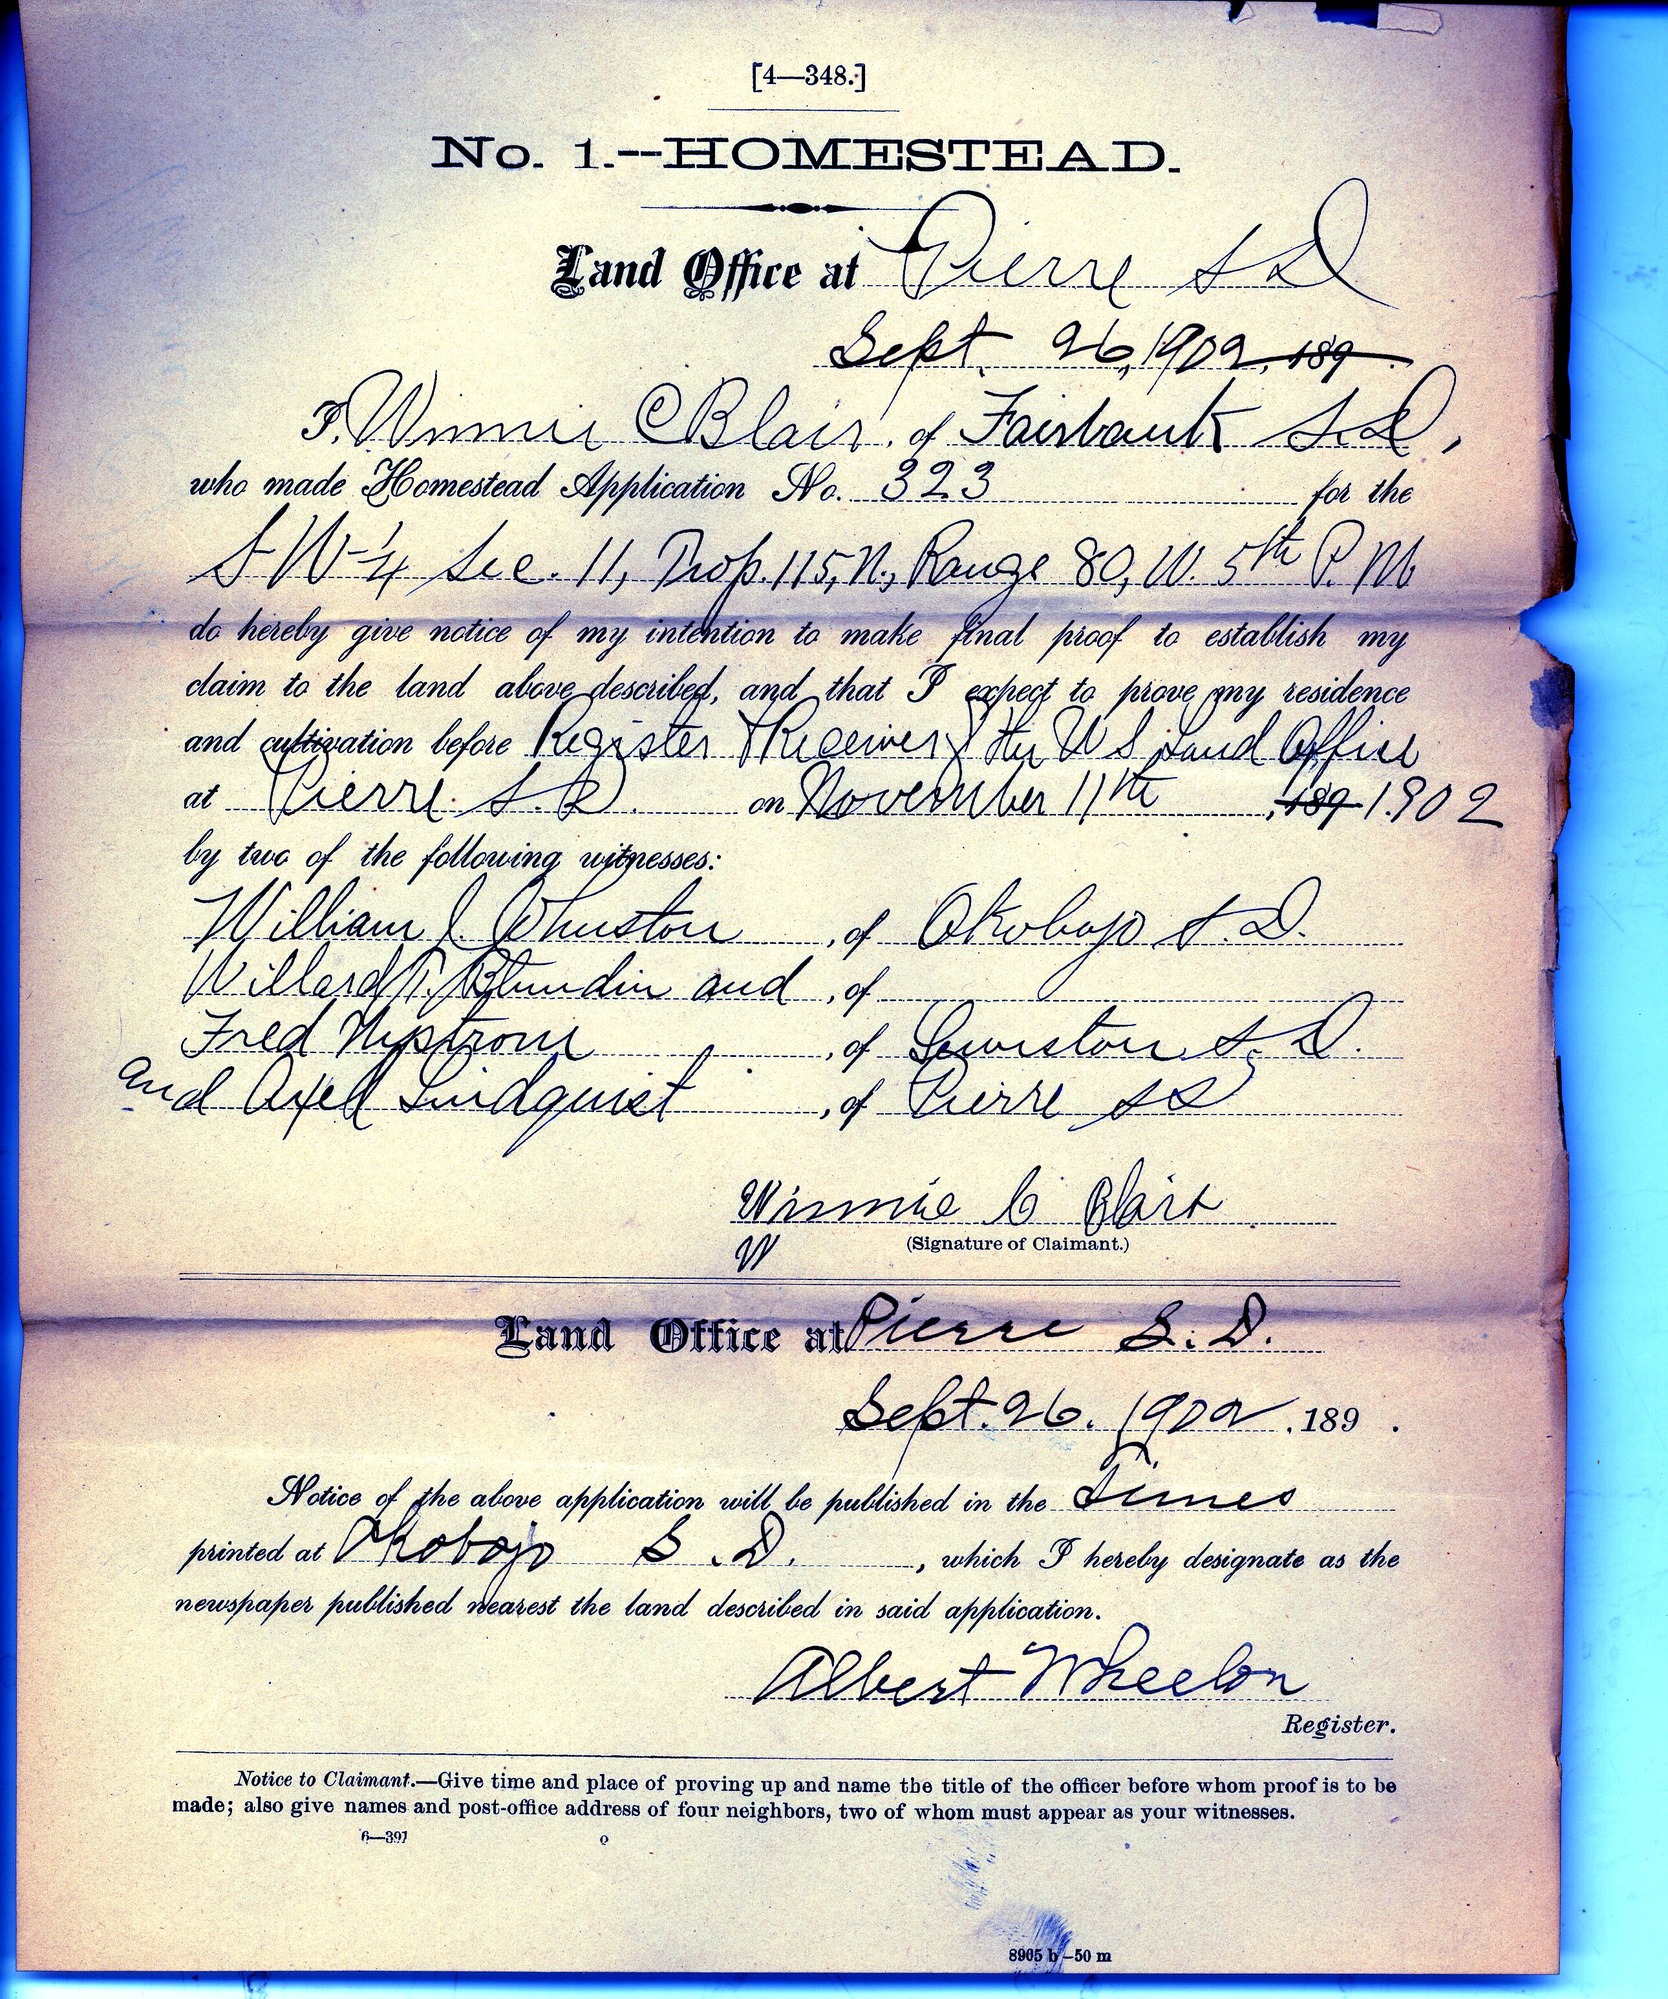 [4—348.]
No. 1.—HOMESTEAD.
Land Office at Pierre S D
Sept. 26, 1902, 189 .
I, Winnie C Blair, of Fairbank S.D,
who made Homestead Application No. 323 for the
S W 1/4 Sec. 11, Twp. 115, N., Range 80, W. 5th P. M
do hereby give notice of my intention to make final proof to establish my
claim to the land above described, and that I expect to prove my residence
and cultivation before Register & Receiver of the U S Land Office
at Pierre. S. D. on November 11th , 189 1902
by two of the following witnesses:
William J. Whuston , of Okobojo S. D.
Willard T. Blundin and , of
Fred Nystrom , of Lewiston S. D.
and Axell Lindquist , of Pierre S D
Winnie C Blair
(Signature of Claimant.)
W
Land Office at Pierre S. D.
Sept. 26. 1902 , 189 .
Notice of the above application will be published in the Times
printed at Okobojo S. D. , which I hereby designate as the
newspaper published nearest the land described in said application.
Albert Wheelon
Register.
Notice to Claimant.—Give time and place of proving up and name the title of the officer before whom proof is to be
made; also give names and post-office address of four neighbors, two of whom must appear as your witnesses.
6—391 o
8905 b—50 m